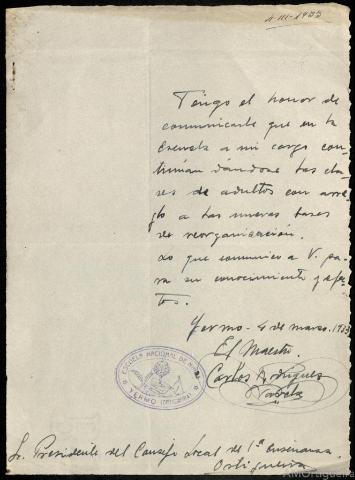 4-III-1933
Tengo el honor de
comunicarle que en la
Escuela a mi cargo con-
tinúan dándose las cla-
ses de adultos con arre-
glo a las nuevas bases
de reorganización.
Lo que comunico a V. pa-
ra su conocimiento y efec-
tos.
Yermo - 4 de marzo. 1933
El Maestro.
Carlos Rodríguez
ESCUELA NACIONAL DE NIÑOS
YERMO (ORTIGUEIRA)
Sr. Presidente del Consejo Local de 1ª enseñanza.
Ortigueira
AMOrtigueira